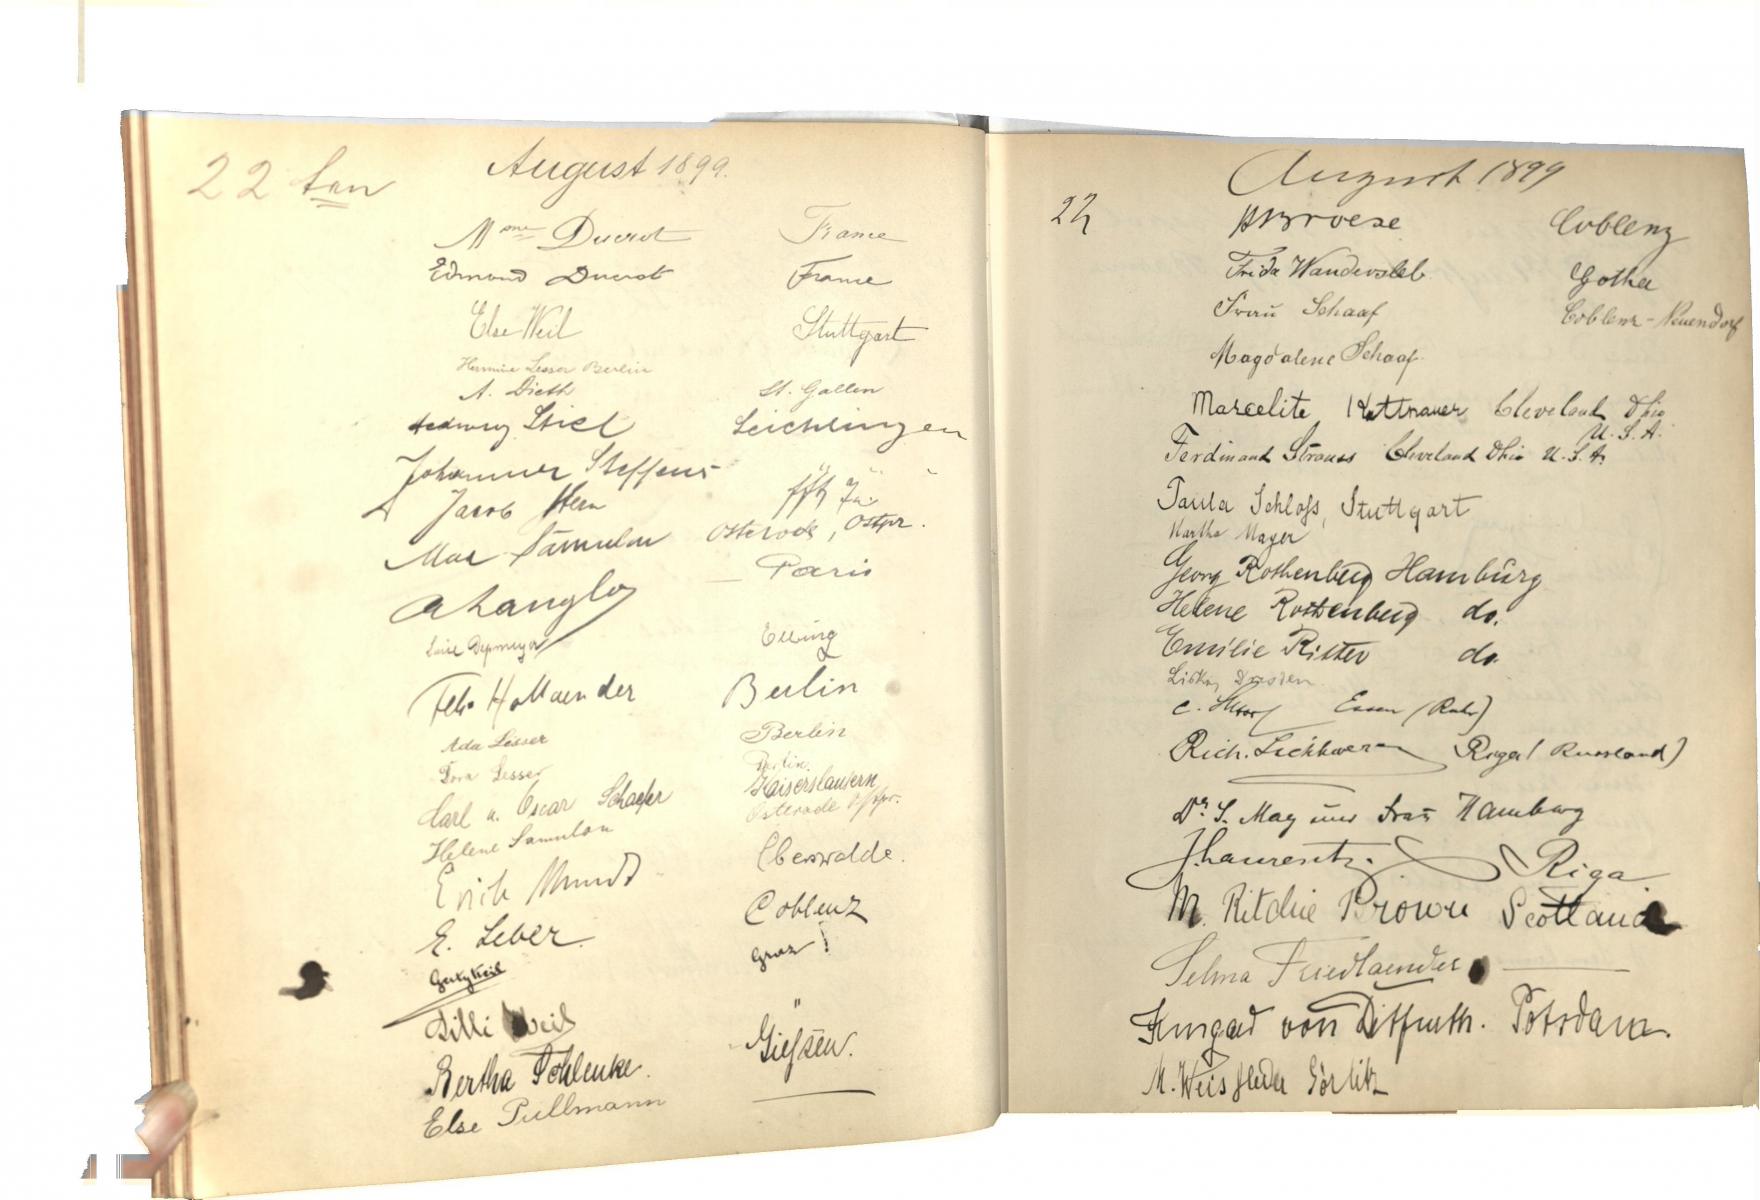 22 ten August 1899.
Mme Ducrot France
Edmond Ducrot France
Else Weil Stuttgart
Hermine Lesser Berlin
A. Dieth St. Gallen
Hedwig Stiel Leichlingen
Johannes Steffens " " "
Jacob Hern
Max Samulon Osterode, Ostpr.
Paris
ALanglois
Elbing
Felix Hollaender Berlin
Ada Lesser Berlin
Dora Lesser Berlin.
Carl u. Oscar Schaefer Kaiserslautern
Helene Samulon Osterode Ostpr.
Erich Mundt Eberswalde.
E. Leber Coblenz
Graz!
Lilli Weil "
Bertha Pohlenke. Gießen.
Else Pullmann
August 1899
22
Coblenz
Frida Wandersleb Gotha
Frau Schaaf Coblenz-Neuendorf
Magdalene Schaaf
Marcelite Cleveland Ohio
U.S.A.
Ferdinand Strauss Cleveland Ohio U.S.A.
Paula Schloß, Stuttgart
Martha Mayer
Georg Rothenberg Hamburg
Helene Rothenberg do.
Emilie Ritter do.
Dresden
C. Essen (Ruhr)
Rich. Riga (Russland)
Dr. S. May und Frau Hamburg
Riga
M. Ritchie Brown Scotland
Selma Friedlaender
Irmgard von Ditfurth. Potsdam.
M. Weisflederer Görlitz